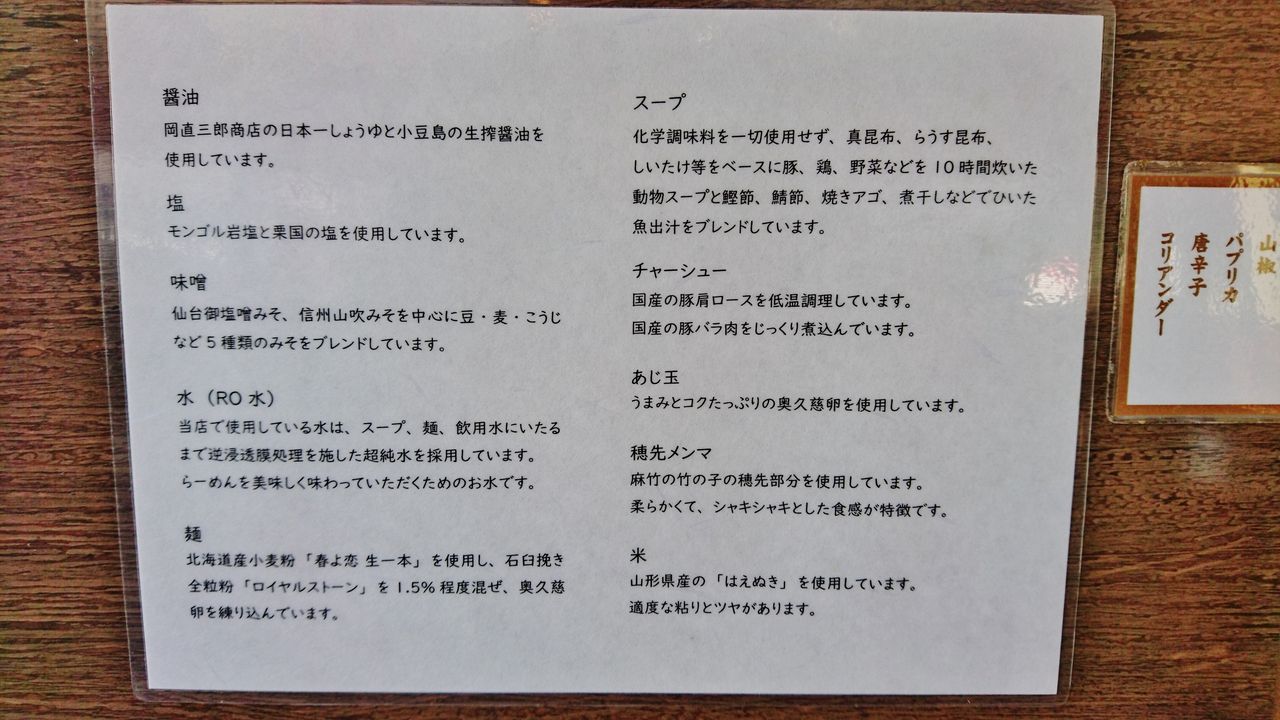 醤油
岡直三郎商店の日本一しょうゆと小豆島の生搾醤油を
使用しています。
塩
モンゴル岩塩と粟国の塩を使用しています。
味噌
仙台御塩噌みそ、信州山吹みそを中心に豆・麦・こうじ
など5種類のみそをブレンドしています。
水（RO水）
当店で使用している水は、スープ、麺、飲用水にいたる
まで逆浸透膜処理を施した超純水を採用しています。
らーめんを美味しく味わっていただくためのお水です。
麺
北海道産小麦粉「春よ恋 生一本」を使用し、石臼挽き
全粒粉「ロイヤルストーン」を1.5%程度混ぜ、奥久慈
卵を練り込んでいます。
スープ
化学調味料を一切使用せず、真昆布、らうす昆布、
しいたけ等をベースに豚、鶏、野菜などを10時間炊いた
動物スープと鰹節、鯖節、焼きアゴ、煮干しなどでひいた
魚出汁をブレンドしています。
チャーシュー
国産の豚肩ロースを低温調理しています。
国産の豚バラ肉をじっくり煮込んでいます。
あじ玉
うまみとコクたっぷりの奥久慈卵を使用しています。
穂先メンマ
麻竹の竹の子の穂先部分を使用しています。
柔らかくて、シャキシャキとした食感が特徴です。
米
山形県産の「はえぬき」を使用しています。
適度な粘りとツヤがあります。
山椒
パプリカ
唐辛子
コリアンダー